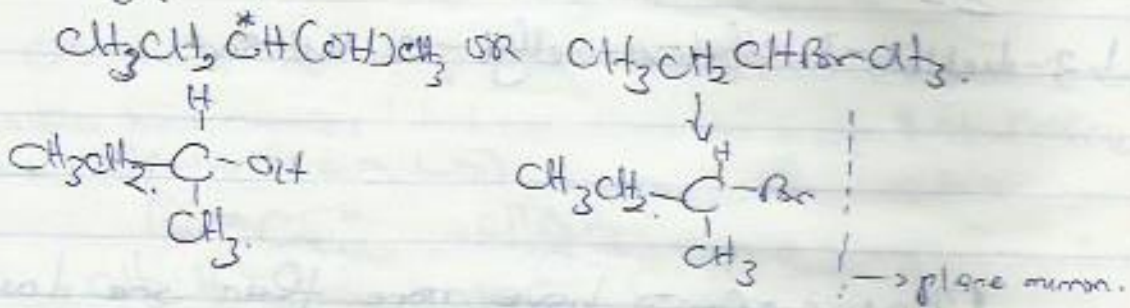 CH₃CH₂C*H(OH)CH₃ OR CH₃CH₂CHBrCH₃.
H
CH₃CH₂.-C-OH
CH₃.
H
CH₃CH₂.-C-Br
CH₃
-> plane mirror.